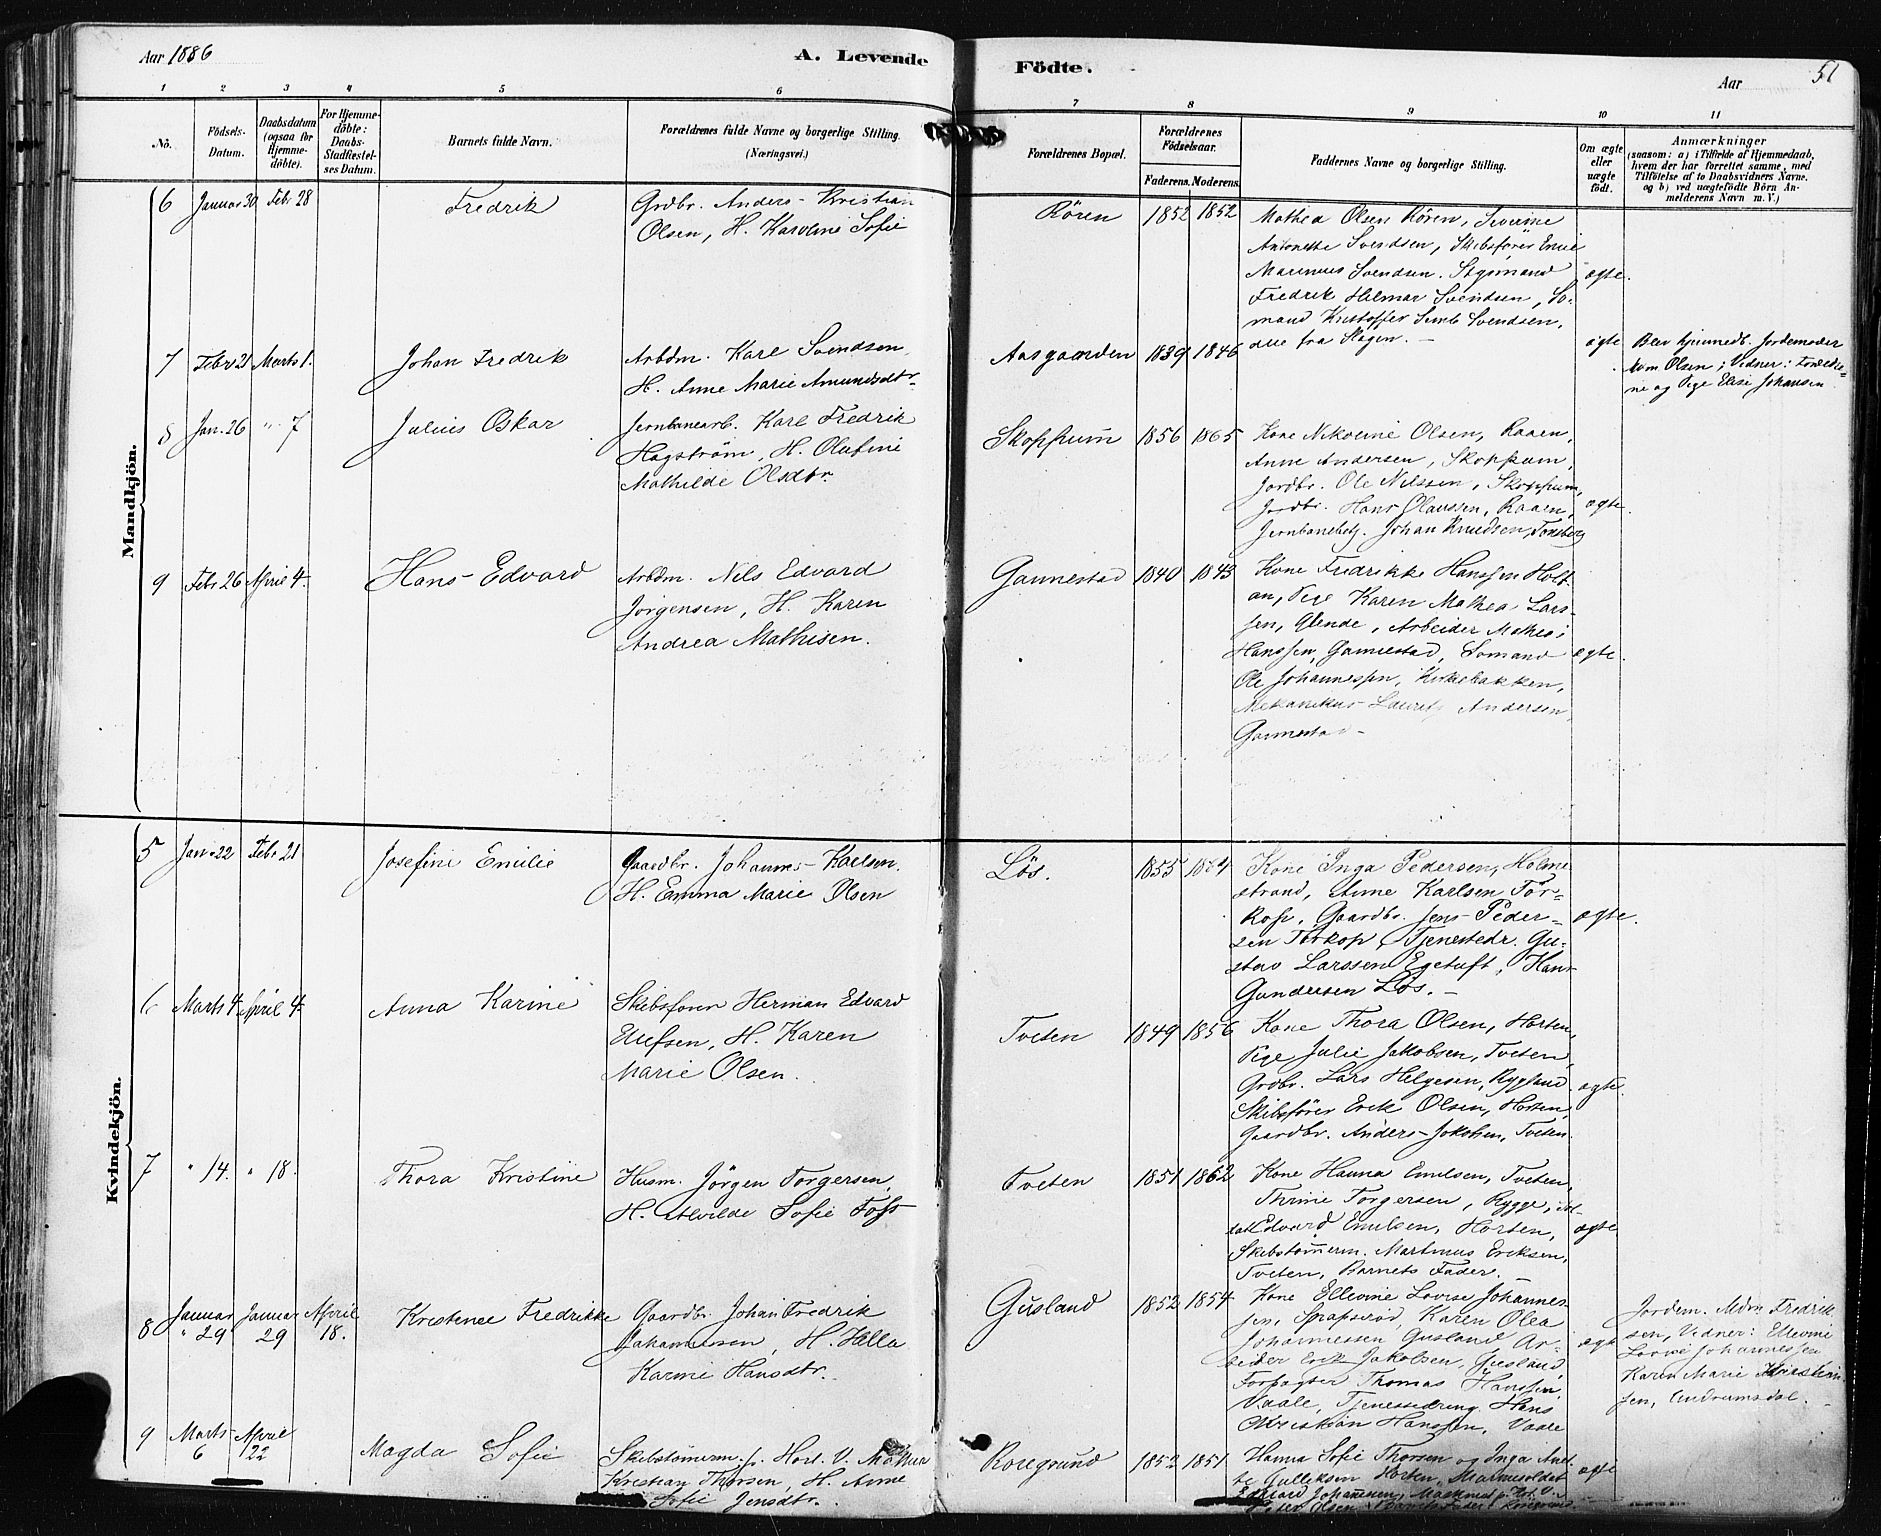 Aar 1886
A. Levende
Födte.
Aar
51
1 2 3 4 5 6 7 8 9 10 11
No.
Födsels-
Datum.
Daabsdatum
(ogsaa for
Hjemme-
döbte).
For Hjemme-
döbte:
Daabs-
Stadfæstel-
ses Datum.
Barnets fulde Navn.
Forældrenes fulde Navne og borgerlige Stilling.
(Næringsvei.)
Forældrenes Bopæl.
Forældrenes
Födselsaar.
Faderens. Moderens.
Faddernes Navne og borgerlige Stilling.
Om ægte
eller
uægte
födt.
Anmærkninger
(saasom: a) i Tilfælde af Hjemmedaab,
hvem der har forrettet samme, med
Tilföielse af to Daabsvidners Navne,
og b) ved uægtefödte Börn An-
melderens Navn m. V.)
Mandkjön.
6 Januar 30 Febr 28 Fredrik
Grdbr. Anders Kristian
Olsen, H. Karoline Sofie
Rören 1852 1852
Mathea Olsen Rören, Severine
Antonette Svendsen, Skibsfører Emil
Marinus Svendsen. Styrmand
Fredrik Hilmar Svendsen, Sø-
mand Kristoffer Svendsen,
alle fra Slagen. —
ægte.
7 Febr 21 Marts 1. Johan Fredrik
Arbdm. Karl Svendsen,
H. Anne Marie Amundsdtr.
Aasgaarden 1839 1846
ægte
Blev hjemmedb. Jordemoder
Olsen; Vidner: Forældre-
ne og Pige Elise Johansen
8 Jan. 26 " 7 Julius Oskar
Jernbanearb. Karl Fredrik
Hagström, H. Olufine
Mathilde Olsdtr.
Skoppum 1856 1865
Kone Nikoline Olsen, Raaen,
Anne Andersen, Skoppum,
Jordbr. Ole Nilssen, Skoppum,
Jordbr. Hans Olaussen, Raaen,
Jernbanebetj. Johan Knudsen, Tønsberg
ægte.
9 Febr 26 April 4. Hans Edvard
Arbdm. Nils Edvard
Jörgensen, H. Karen
Andrea Mathisen.
Gannestad 1840 1843
Kone Fredrikke Hanssen Holt-
an, Pige Karen Mathea Lars-
sen, Glende, Arbeider Mathias
Hanssen, Gannestad, Sømand
Ole Johannessen, Kirkebakken,
Mekanikus Laurits Andersen,
Gannestad —
ægte.
Kvindekjön.
5 Jan. 22 Febr 21 Josefine Emilie
Gaardbr. Johannes Karlsen.
H. Emma Marie Olsen
Lös. 1855 1864
Kone Inga Pedersen, Holme-
strand, Anne Karlsen Tor-
kop, Gaardbr. Jens Peder-
sen Torkop, Tjenestedr. Gu-
stav Larssen Egetuft, Hans
Gundersen Lös. —
ægte.
6 Marts 4. April 4. Anna Karine
Skibsfører Herman Edvard
Ellefsen, H. Karen
Marie Olsen.
Tveten 1849 1856
Kone Thora Olsen, Horten,
Pige Julie Jakobsen, Tveten,
Grdbr. Lars Helgesen, Rygland
Skibsfører Erik Olsen, Horten,
Gaardbr. Anders Jakobsen, Tveten
ægte
7 " 14. " 18. Thora Kristine
Husm. Jörgen Torgersen,
H. Alvilde Sofie Foss
Tveten 1851 1862
Kone Hanna Emilsen, Tveten,
Thrine Torgersen, Rygge,
Edvard Emilsen, Horten,
Skibstømmerm. Martinus Eriksen,
Tveten, Barnets Fader.
ægte
8 Januar 29 Januar 29 April 18. Kristence Fredrikke
Gaardbr. Johan Fredrik
Johannessen, H. Hella
Karine Hansdtr.
Gusland 1852 1854
Kone Ellevine Lovise Johannes-
sen, Karen Olea
Johannessen Gusland, Ar-
beider Erik Jakobsen, Gusland,
Forpagter Thomas Hanssen,
Vaale, Tjenestedreng Hans
Christian Hanssen, Vaale
ægte
Jordem. Fredrik
sen, Vidner: Ellevine
Lovise Johannessen
Karen Marie Kristian
sen, Undrumsdal.
9 Marts 6 April 22 Magda Sofie
Skibstømerm. p. Hort. V.
Kristian Thorsen, H. Anne
Sofie Jensdtr.
Roregrund 1852 1851
Hanna Sofie Thorsen og Inga
Gulliksen Horten, Marinesoldat
Edvard Johannesen,
Olsen Barnets Fader
ægte